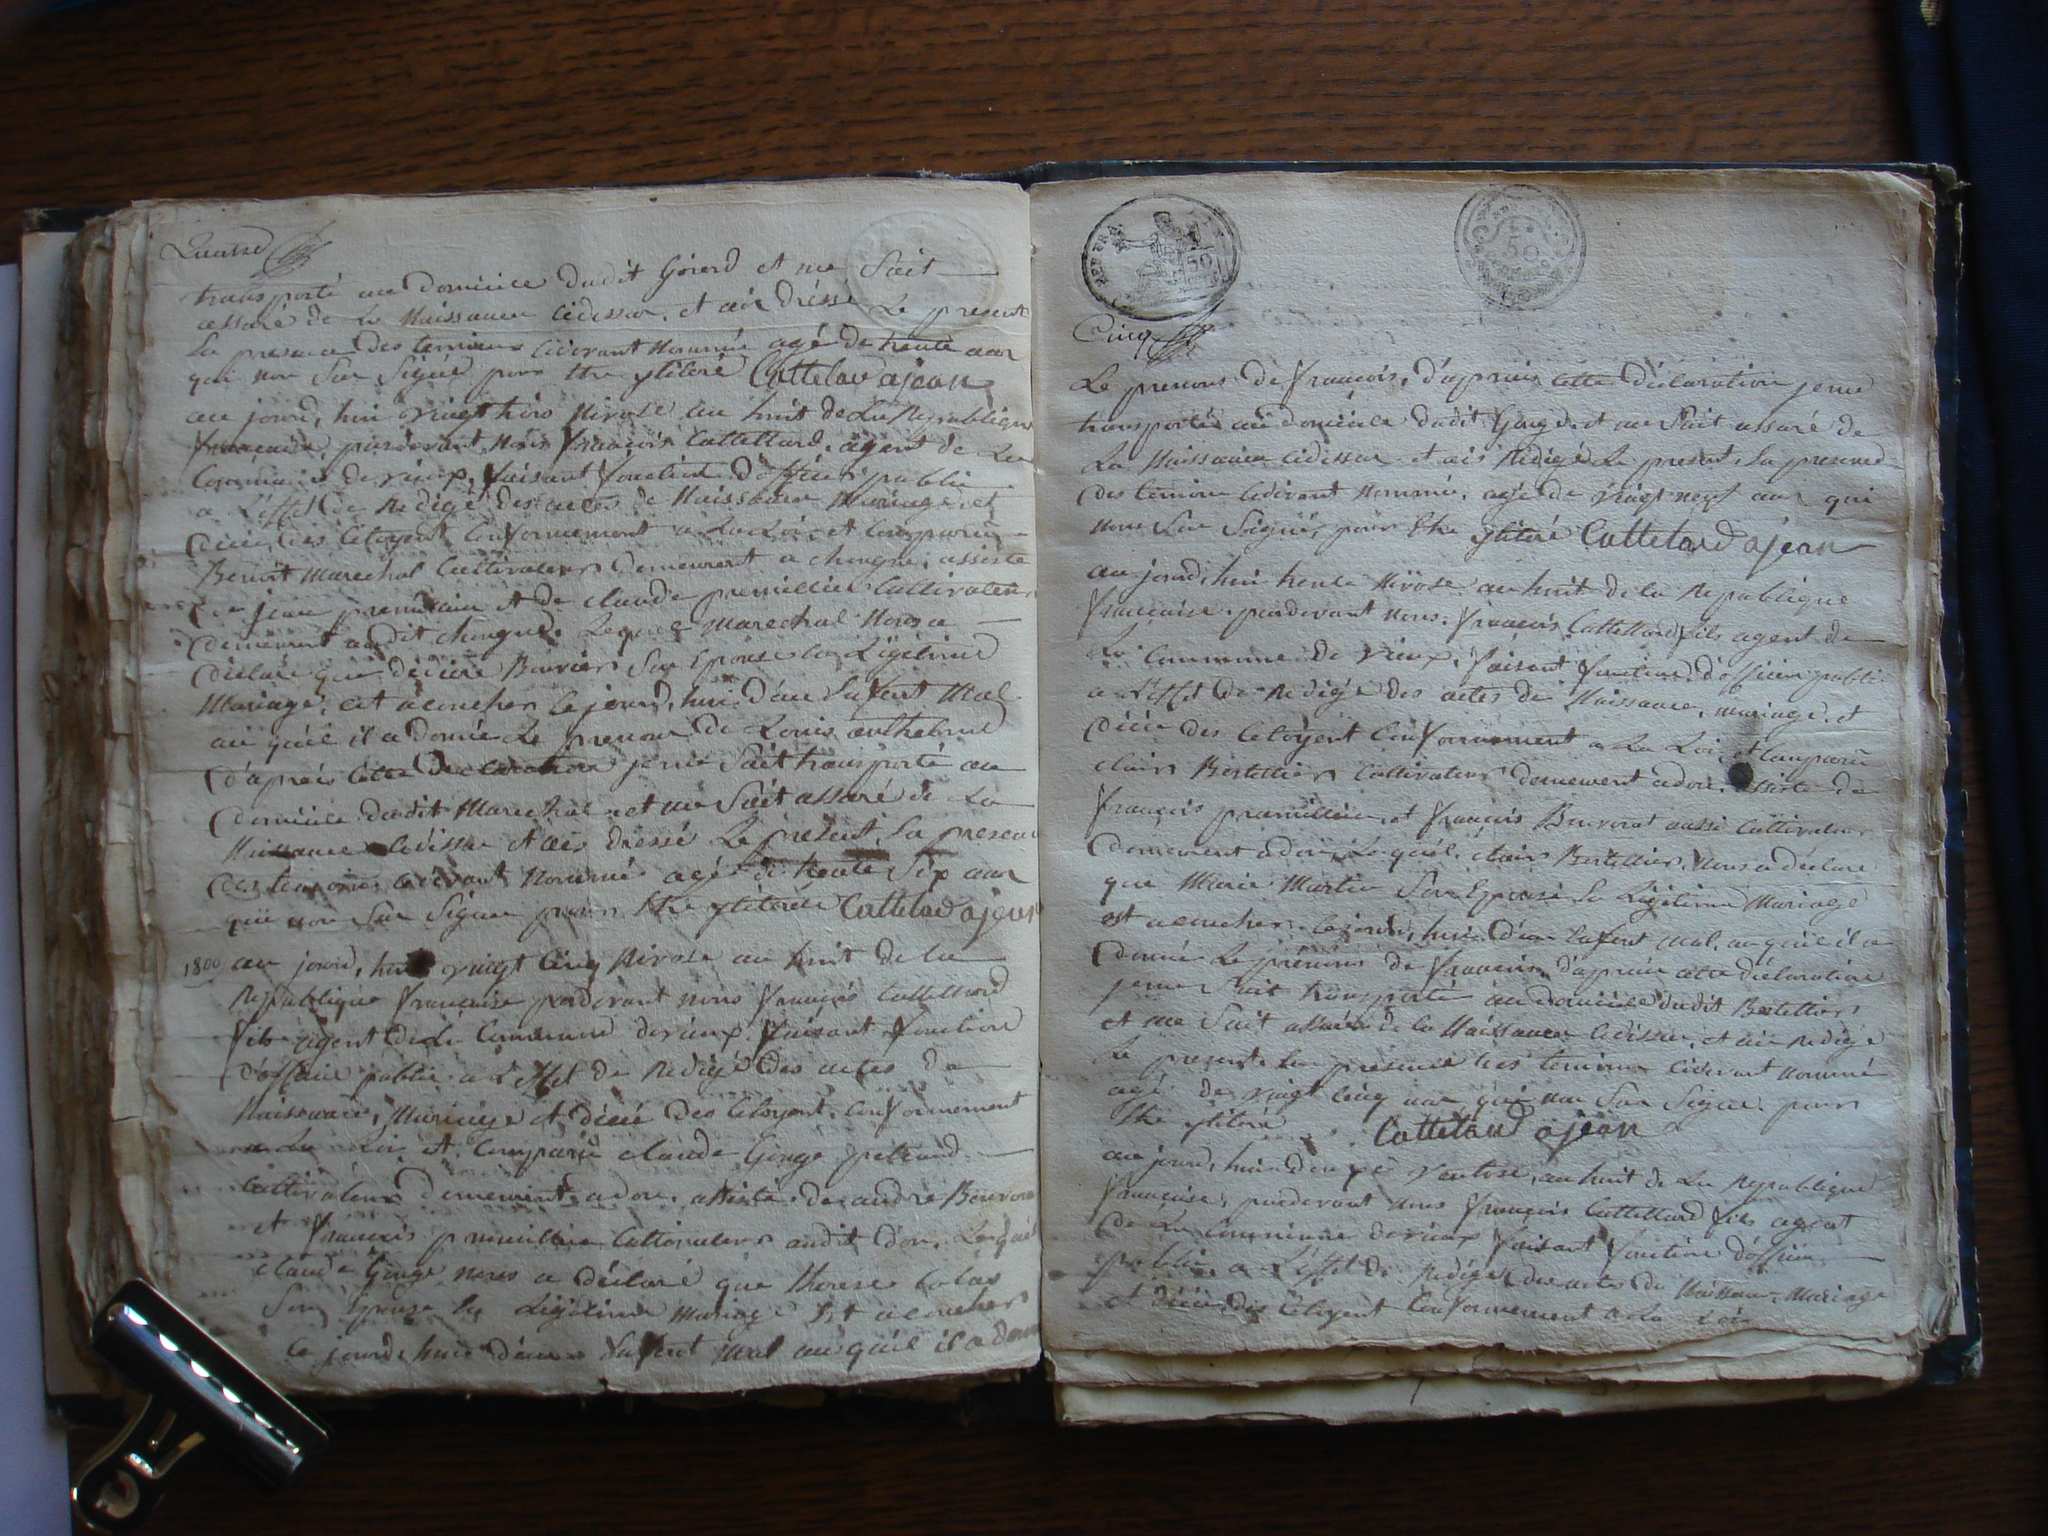 transporté au domicile dudit Girerd et me Suit
assuré de la Naissance cidessus, et aix dressé Le present
La presence des temieux cidevant nommée agé de trente aux
qui non Sue Signé pour Etre ylitéré Cattelard ajean
au jourd, hui vingt trois Nivose an huit de La Republique
francaise, pardevant Nous françois Cattellard, agent de La
Commune de rieux, faisant fonction d'officier public
a L'effet de Redigé des actes de Naissance Mariage et
décé des Citoyent Conformement a La Loi, et Comparue
Benoit Marechal Cultivateur demeurent a chongne, assisté
de jean premillieu et de claude premillieu Cultivateur
demeurent audit chongne. Lequel Marechal Nous a
déclaré que Son Epouse La Légitime
Mariage, est acoucher Cejourd, hui d'un Enfent Mal
au quel il a donné Le prenom de Louis anthelme
d'après cette déclaration jeme Suit transporté au
domicile dudit Marechal et me Suit assuré de La
Naissance cidessus et aix dressé Le present, La presence
des temoins cidevant Nommé agés de trente Six aux
qui non Sue Signer pour Etre ylitérés Cattelard ajean
1800 au jourd, hui vingt cinq Nivose an huit de la
Republique françaisse pardevant nous françois Cattellard
fils agent de La Commune de rieux, faisant fonction
d'officie public a L'effet de Redigé des actes de
Naissance, Mariage et décé des Citoyent Conformement
a La Loi et Comparue claude Gonge
Cultivateur demeurent a don, assisté de andré Bouvra
et françois premillieu Cultivateurs audit don, Lequel
claude Gonge nous a déclaré que therese Colas
Son Epouse La Légitime Mariage Est acoucher
Ce jourd, hui d'un Enfent Mal au quel il a donné
REP. FRA.
50
50
Cinq
Le prenons de françois, d'après cette déclaration jeme
transporté au domicile dudit Gonge, et me Suit assuré de
La Naissance cidessus et aix Redigé Le present, La presence
des temieux cidevant Nommé, agé de vingt neuf aux qui
nons Sue Signér, pour Etre ylitéré Cattelard ajean
au jourd, hui trente Nivose an huit de la Republique
françaisse, pardevant nous, françois Cattellard fils agent de
La Commune de rieux, faisant fonction d'officier public
a L'effet de Redigé des actes de Naissance, mariage, et
décée des Citoyent Conformement a La Loi, et Comparu
clair Bertellier Cultivateur demeurent adon, assisté de
françois premillieu, et françois Bouvrat aussi Cultivateur
demeurent adon, Lequel, clair Bertellier, nous a déclaré
que Marie Martin Son Epouse La Légitime Mariage
est acoucher cejourd, hui d'un Enfent Mal, au quel il a
donné Le prénoms de françois, d'après cette déclaration
jeme suit transporté au domicile dudit Bertellier
et me Suit assuré de la Naissance cidessus, et aix Redigé
Le present, La presence des temieux cidevant nommé
agé de vingt cinq aux qui non Sue Signer pour
Etre ylitéré Cattelard ajean
au jourd, hui douze ventose, an huit de La Republique
françaisse, pardevant nous françois Cattellard fils agent
de La Commune de rieux faisant fonction d'officier
public, a L'effet de Rédiger des actes de Naissance, Mariage
et décée, des Citoyent Conformement a La Loi